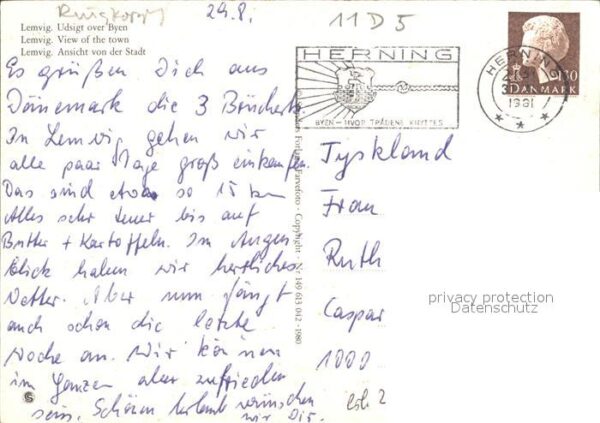 Ringkopig
29.8.
11 D 5
Lemvig. Udsigt over Byen
Lemvig. View of the town
Lemvig. Ansicht von der Stadt
Es grüßen Dich aus
Dänemark die 3
In Lemvig gehen wir
alle paar Tage groß einkaufen.
Das sind etwa so 15 km
Alles sehr teuer bis auf
Butter + Kartoffeln. Im Augen
blick haben wir herrliches
Wetter. Aber nun fängt
auch schon die letzte
Woche an. Wir können
im Ganzen aber zufrieden
sein. Schönen Urlaub wünschen
wir Dir.
HERNING
BYEN - HVOR TRÅDENE KNYTTES
HERNING
1981
DANMARK
Forlag Farvefoto · Copyright · Nr 149 613 042 · 1980
Tyskland
Frau
Ruth
Caspar
1000
privacy protection
Datenschutz